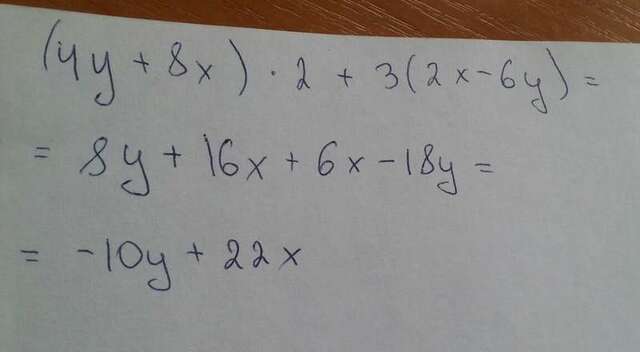 (4y + 8x) · 2 + 3(2x - 6y) =
= 8y + 16x + 6x - 18y =
= -10y + 22x